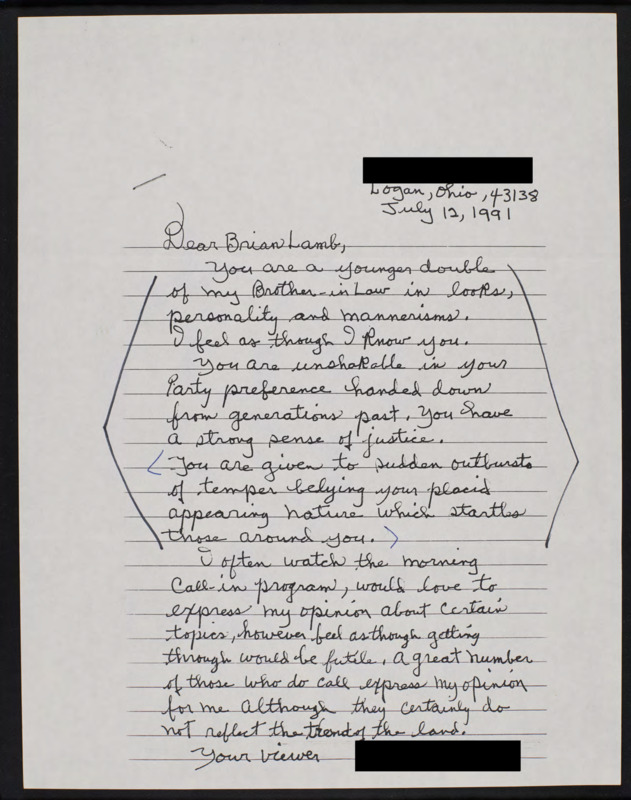 Logan, Ohio, 43138
July 12, 1991
Dear Brian Lamb,
You are a younger double
of my Brother-in Law in looks,
personality and mannerisms.
I feel as though I know you.
You are unshakable in your
Party preference handed down
from generations past. You have
a strong sense of justice.
You are given to sudden outbursts
of temper belying your placid
appearing nature which startles
those around you.
I often watch the morning
Call-in program, would love to
express my opinion about certain
topics, however feel as though getting
through would be futile. A great number
of those who do call express my opinion
for me although they certainly do
not reflect the trend of the land.
Your viewer